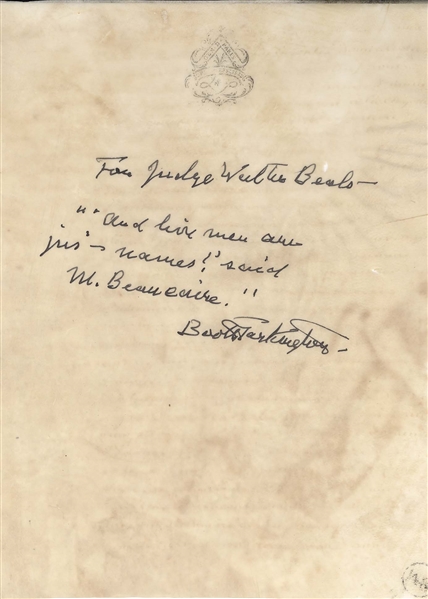 For Judge Walter Beals—
"'and live men are
jus'— names!' said
M. Beaucaire."
Booth Tarkington—